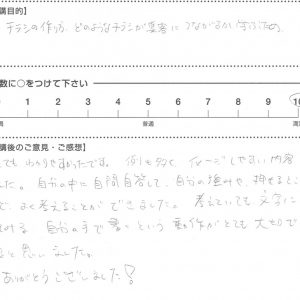 講目的】
チラシの作り方、どのようなチラシが集客につながるか学ぶため。
数に○をつけて下さい
0 1 2 3 4 5 6 7 8 9 10
普通
満
講後のご意見・ご感想】
てもわかりやすかったです。例も多く、イメージしやすい内容
した。自分の中に自問自答して、自分の強みや、押せるところ
で、よく考えることができました。考えていても文字に
みる、自分の手で書くという動作がとても大切で
ると思いました。
ありがとうございました！